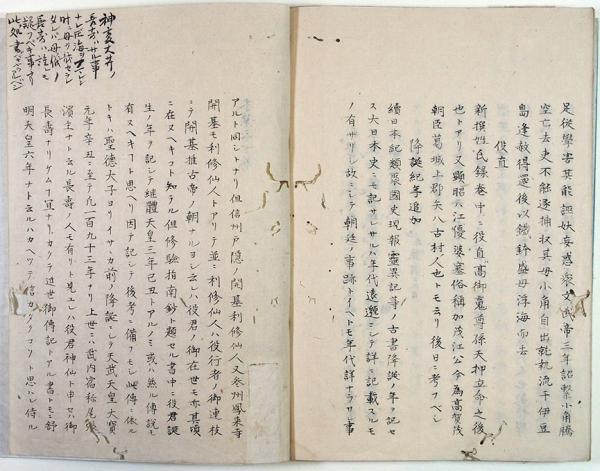 足從學害其能誣妖妄惑衆文武帝三年詔繫小角騰
空亡去吏不能逐捕収其母小角自出就執流于伊豆
島逢赦得還後以鐵鉢盛母浮海而去
役直
新撰姓氏録巻中ニ役直高御魂尊孫天押立命之後
也トアリ又顕昭ハ江優婆塞俗稱加茂江公今為高賀茂
朝臣葛城上郡矢八古村人也トモ云リ後日ニ考フベシ
降誕紀年追加
續日本紀類聚國史現報靈異記等ノ古書降誕ノ年ヲ記セ
ス大日本史ニモ記サレサルハ年代遠邈ニシテ詳ニ記載スルモ
ノ有サリシ故ニシテ朝廷ノ事跡トイヘトモ年代詳ナラサル事
アルト同シトナリ但信州戸隠ノ開基利修仙人又参州鳳来寺
開基モ利修仙人トアリテ並ニ利修仙人ハ役行者ノ御連枝
ニテ開基推古帝ノ朝ナルヨシ云ヘハ役君ノ御在世モ亦其頃
ニ在ヌヘキコト知ラル但修驗指南鈔ト題セル書中ニ役君誕
生ノ年ヲ記シテ継體天皇三年己丑トアルノミ或ハ然ル傳説モ
有ヌヘキコト思ヘリ因テ記シテ後考ニ備フモシ此傳ニ依ル
トキハ聖德太子ヨリイササカ前ノ降誕ニシテ天武天皇大寳
元年辛丑ニ至テ凡一百九十三年ナリ上世ニハ武内宿祢尾張
濱主ナト云ル長壽ノ人モ有リト見エレハ役君神仙ト申セハ御
長壽ナリケムモ宜ナリカクテ近世御傳記トアル書トモニ舒
明天皇六年ナト云ルハカヘツテ信カタクコソト思ハレ侍ル
神変大井ノ
長寿ハサル事